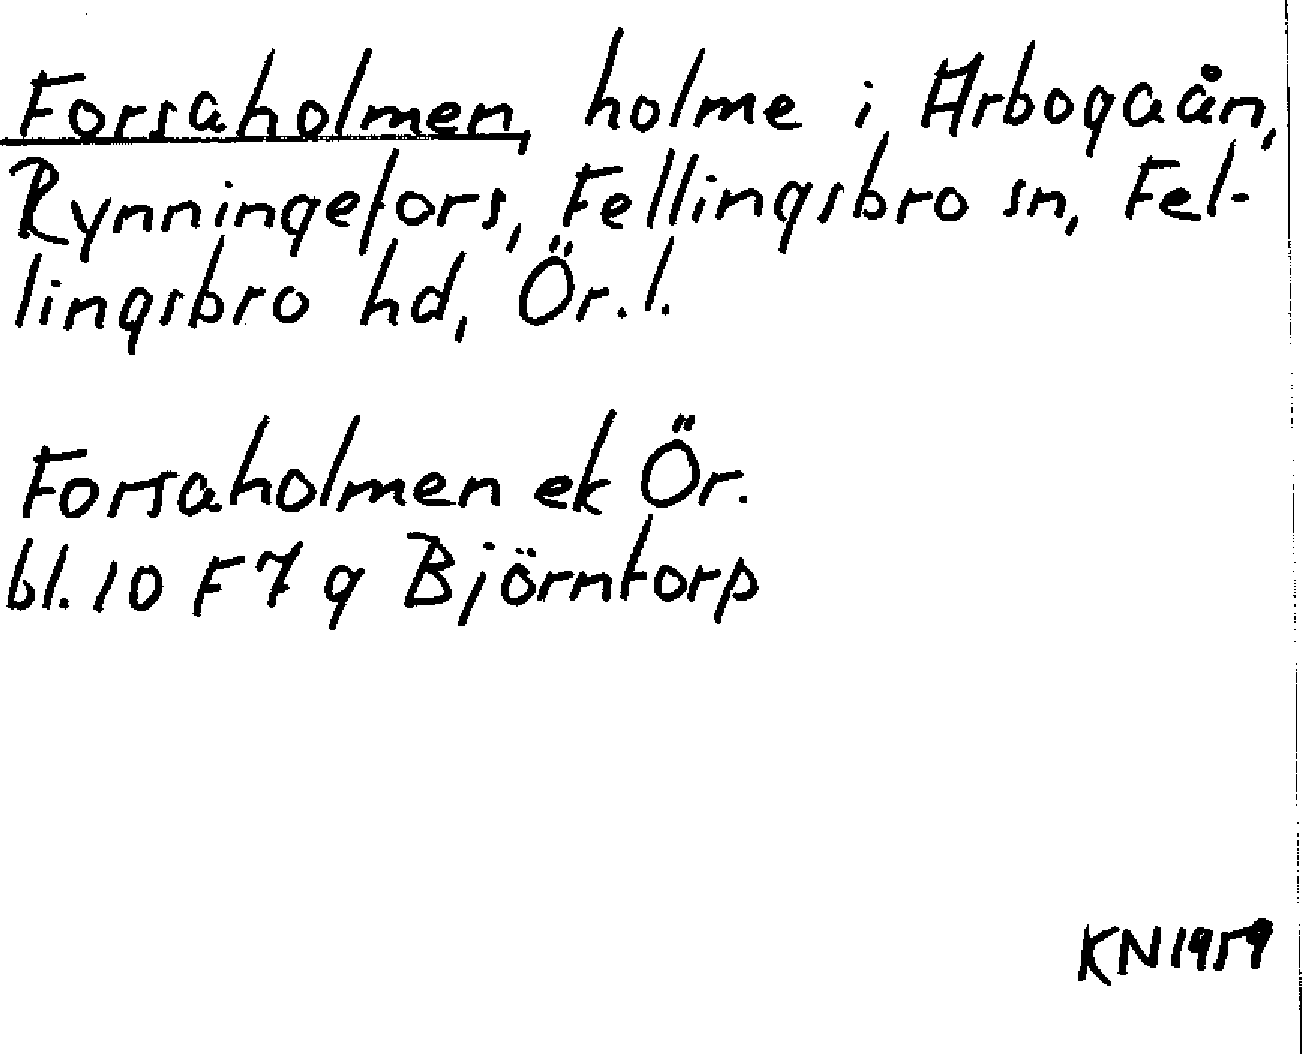 Forsaholmen, holme i Arbogaån,
Rynningefors, Fellingsbro sn, Fel-
lingsbro hd, Ör. l.
Forsaholmen ek Ör.
bl. 10 F 7 g Björntorp
KN1959